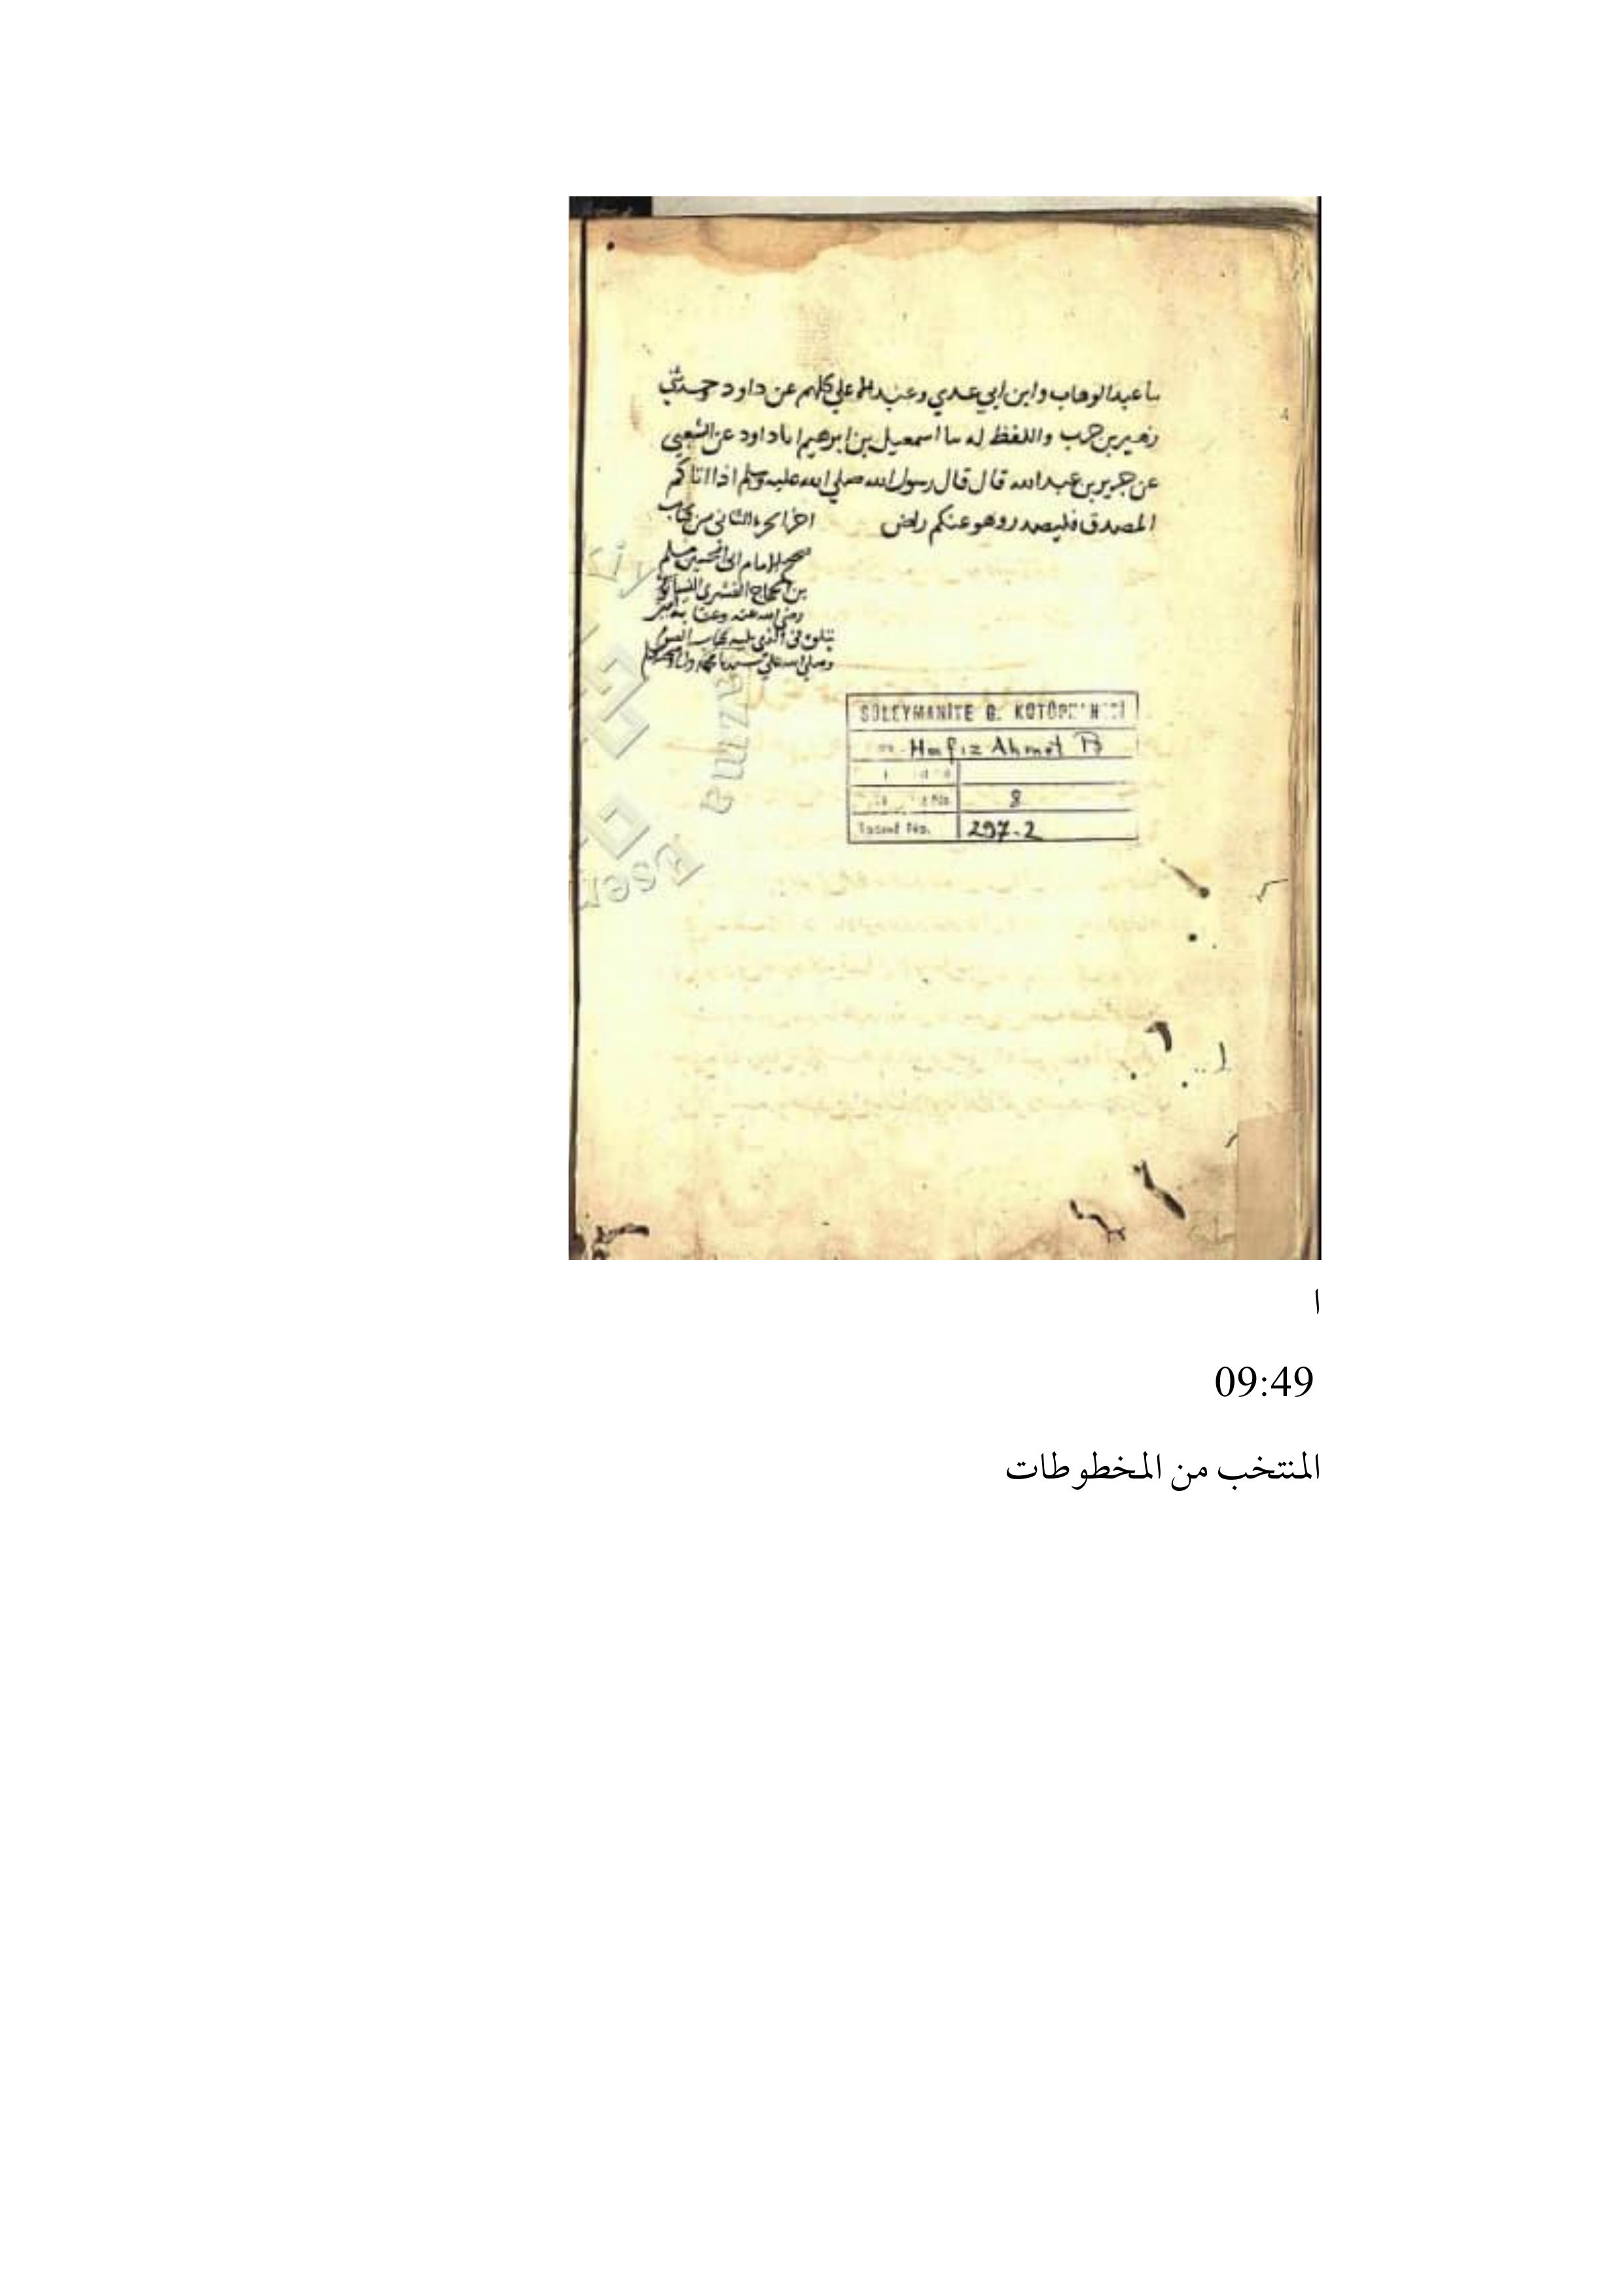 سا عبد الوهاب وابن ابي عدي وعبد الاعلي كلهم عن داود ح وحدثني
زهير بن حرب واللفظ له سا اسمعيل بن ابرهيم اسا داود عن الشعبي
عن جرير بن عبد الله قال قال رسول الله صلي الله عليه وسلم اذا اتاكم
المصدق فليصدر وهو عنكم راض
اخر الجزء الثاني من كتاب
صحيح الامام ابي الحسين مسلم
بن الحجاج القشيري النيسابوري
رضي الله عنه وعنا به امين
يتلوه في الذي يليه كتاب الصوم
وصلي الله علي سيدنا محمد واله
SÜLEYMANİYE G. KÜTÜPHANESİ
Hafız Ahmet P
8
Tasnif No. 297.2
4
Yazma
Eser
ا
09:49
المنتخب من المخطوطات